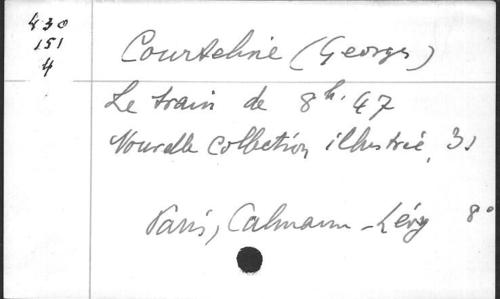 430
151
4
Courteline (Georges)
Le train de 8h. 47
Nouvelle collection illustrée, 31
Paris, Calmann-Lévy 8°